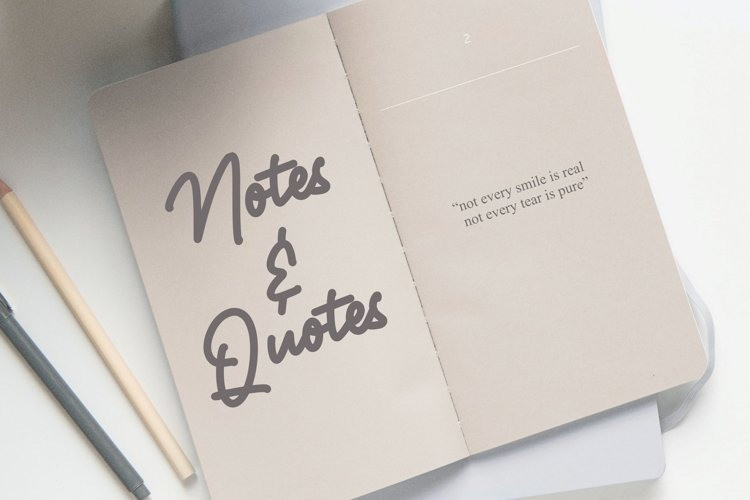 Notes
&
Quotes
2
“not every smile is real
not every tear is pure”